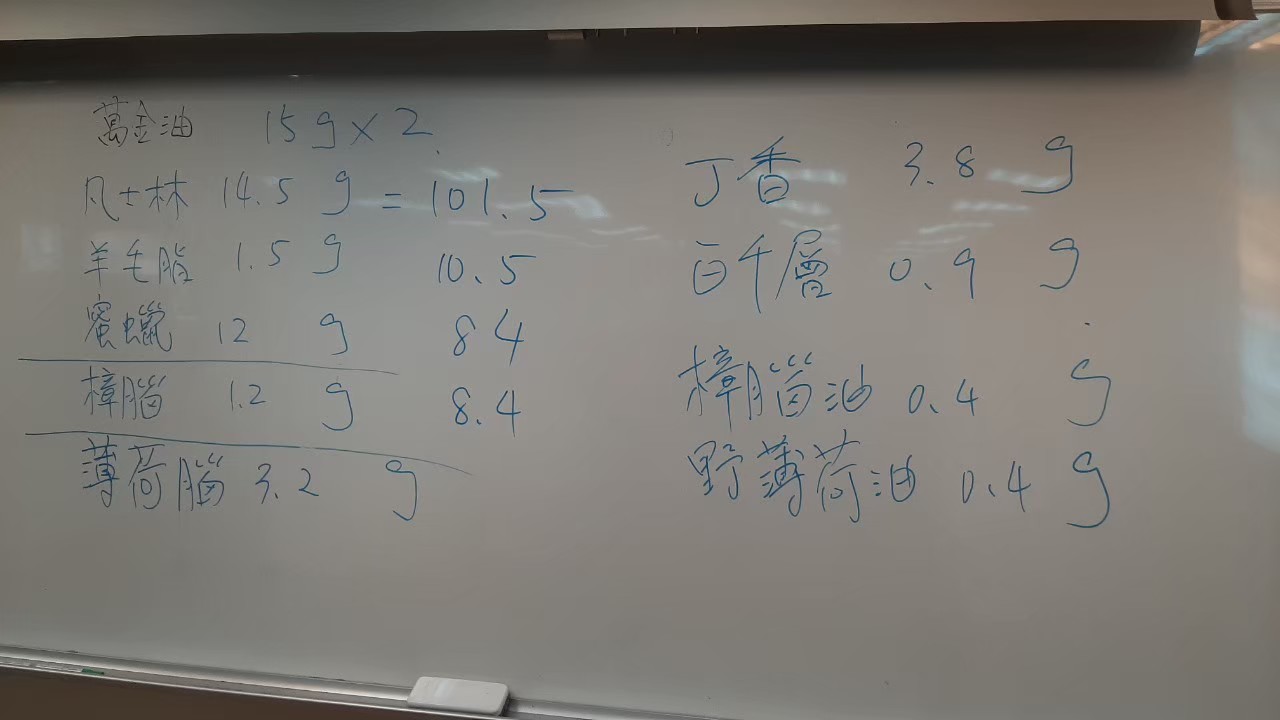 萬金油 15g×2
凡士林 14.5 g = 101.5
羊毛脂 1.5 g 10.5
蜜蠟 12 g 84
樟腦 1.2 g 8.4
薄荷腦 3.2 g
丁香 3.8 g
白千層 0.9 g
樟腦油 0.4 g
野薄荷油 0.4 g